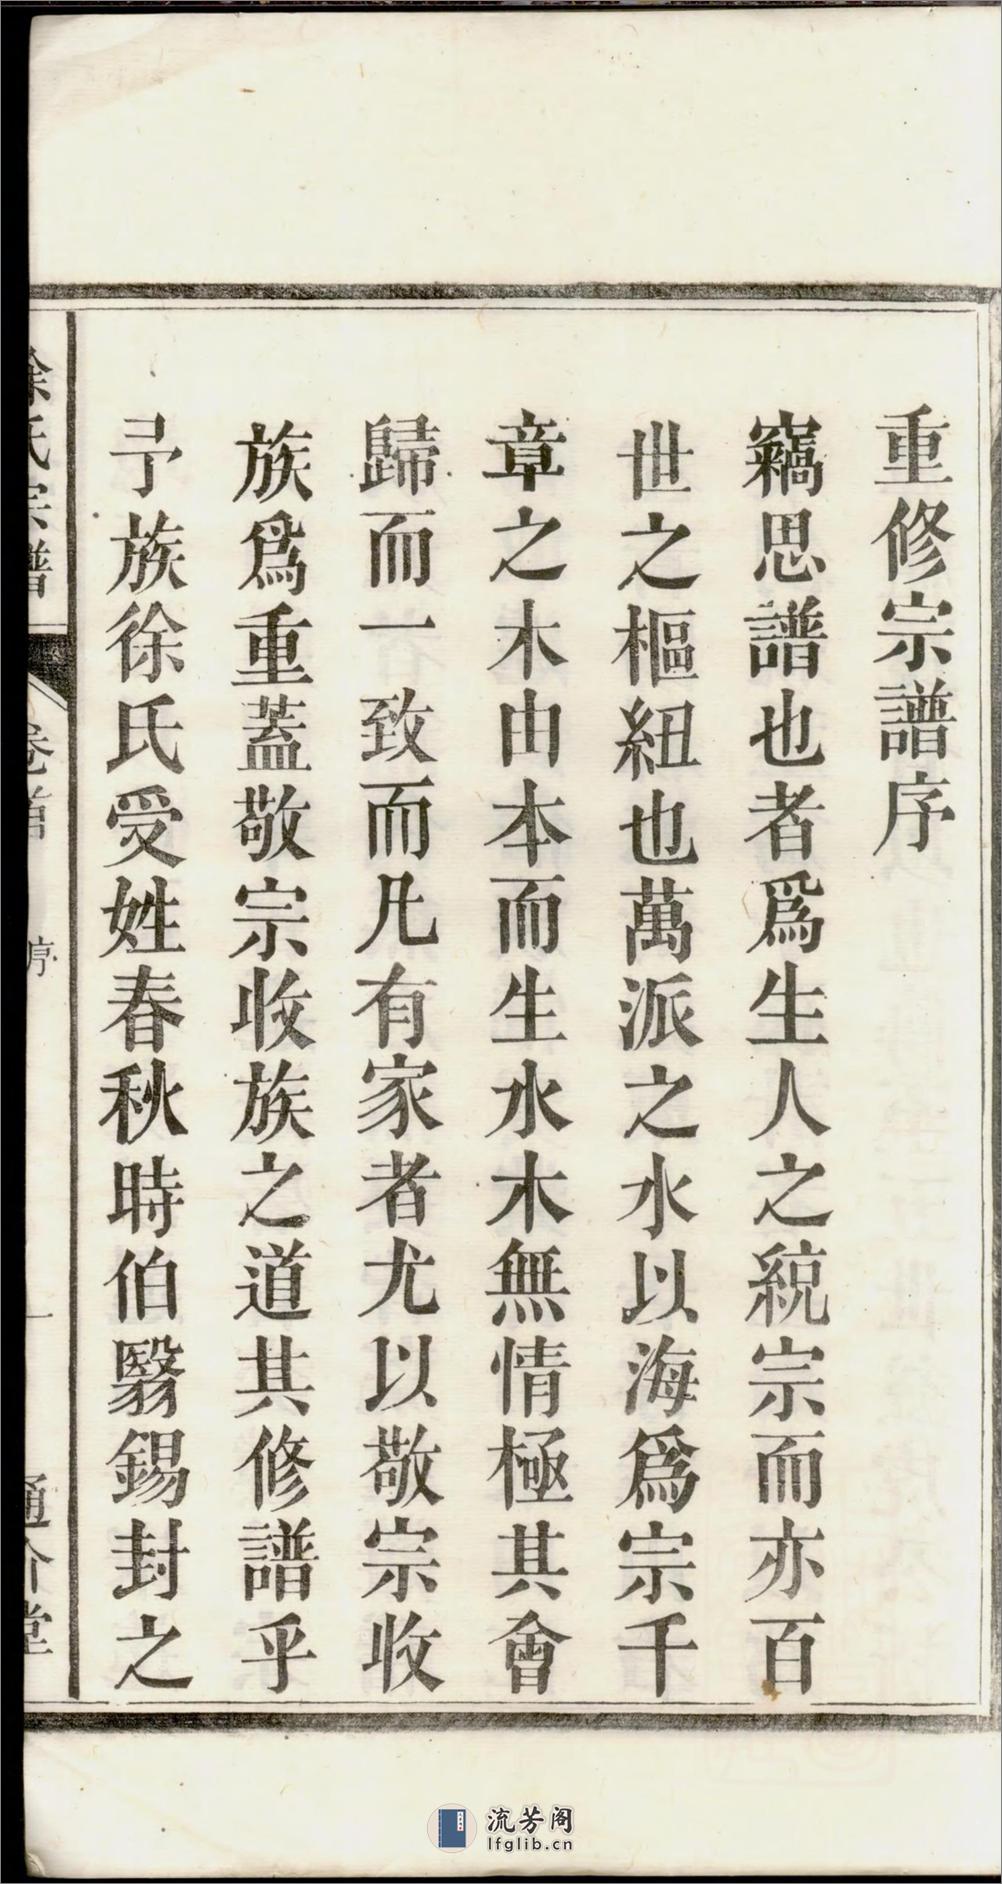 重修宗譜序
竊思譜也者爲生人之統宗而亦百
世之樞紐也萬派之水以海爲宗千
章之木由本而生水木無情極其會
歸而一致而凡有家者尤以敬宗收
族爲重蓋敬宗收族之道其修譜乎
予族徐氏受姓春秋時伯翳錫封之
徐氏宗譜 卷首 序 一 通介堂
流芳阁
lfglib.cn